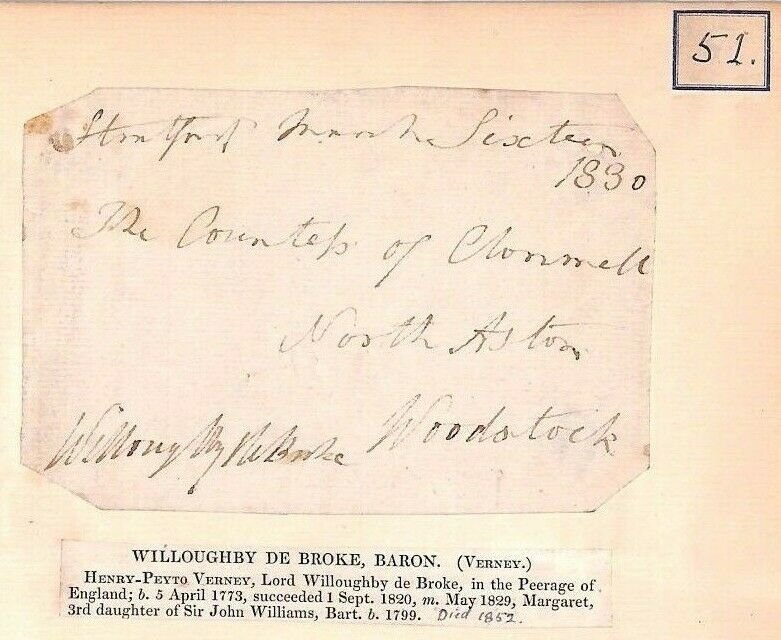 51.
Stratford March Sixteen
1830
The Countess of Clonmell
North Aston
Woodstock
Willoughby de Broke
WILLOUGHBY DE BROKE, BARON. (VERNEY.)
HENRY-PEYTO VERNEY, Lord Willoughby de Broke, in the Peerage of
England; b. 5 April 1773, succeeded 1 Sept. 1820, m. May 1829, Margaret,
3rd daughter of Sir John Williams, Bart. b. 1799. Died 1852.